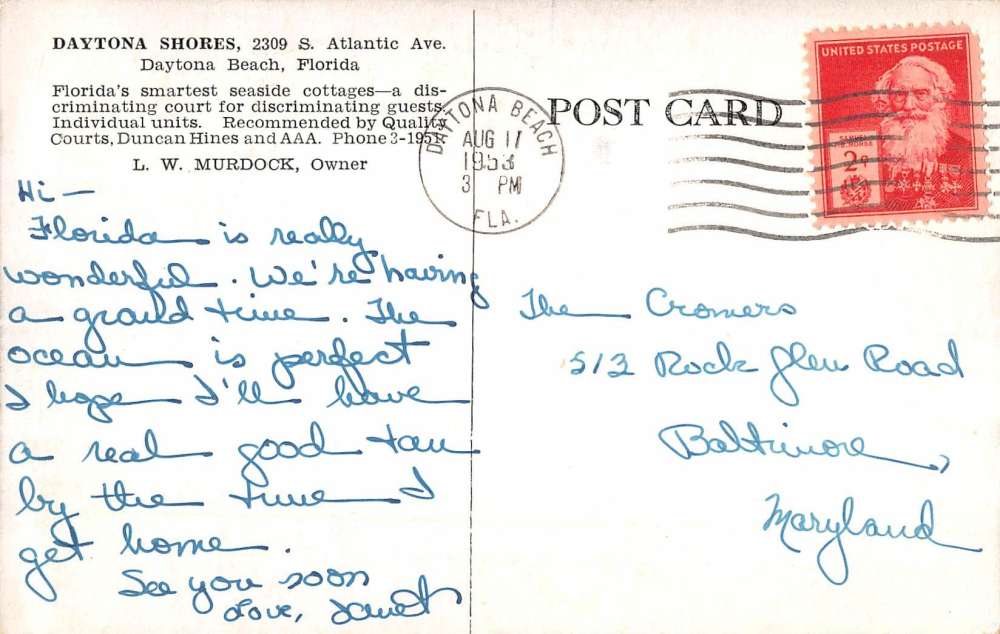 DAYTONA SHORES, 2309 S. Atlantic Ave.
Daytona Beach, Florida
Florida's smartest seaside cottages—a dis-
criminating court for discriminating guests.
Individual units. Recommended by Quality
Courts, Duncan Hines and AAA. Phone 3-1951.
L. W. MURDOCK, Owner
Hi —
Florida is really
wonderful. We're having
a grand time. The
ocean is perfect
I hope I'll have
a real good tan
by the time I
get home.
See you soon
Love, Janet
DAYTONA BEACH
AUG 17
1953
3 PM
FLA.
POST CARD
UNITED STATES POSTAGE
SAMUEL
F.B. MORSE
2¢
The Cromers
513 Rock Glen Road
Baltimore,
Maryland